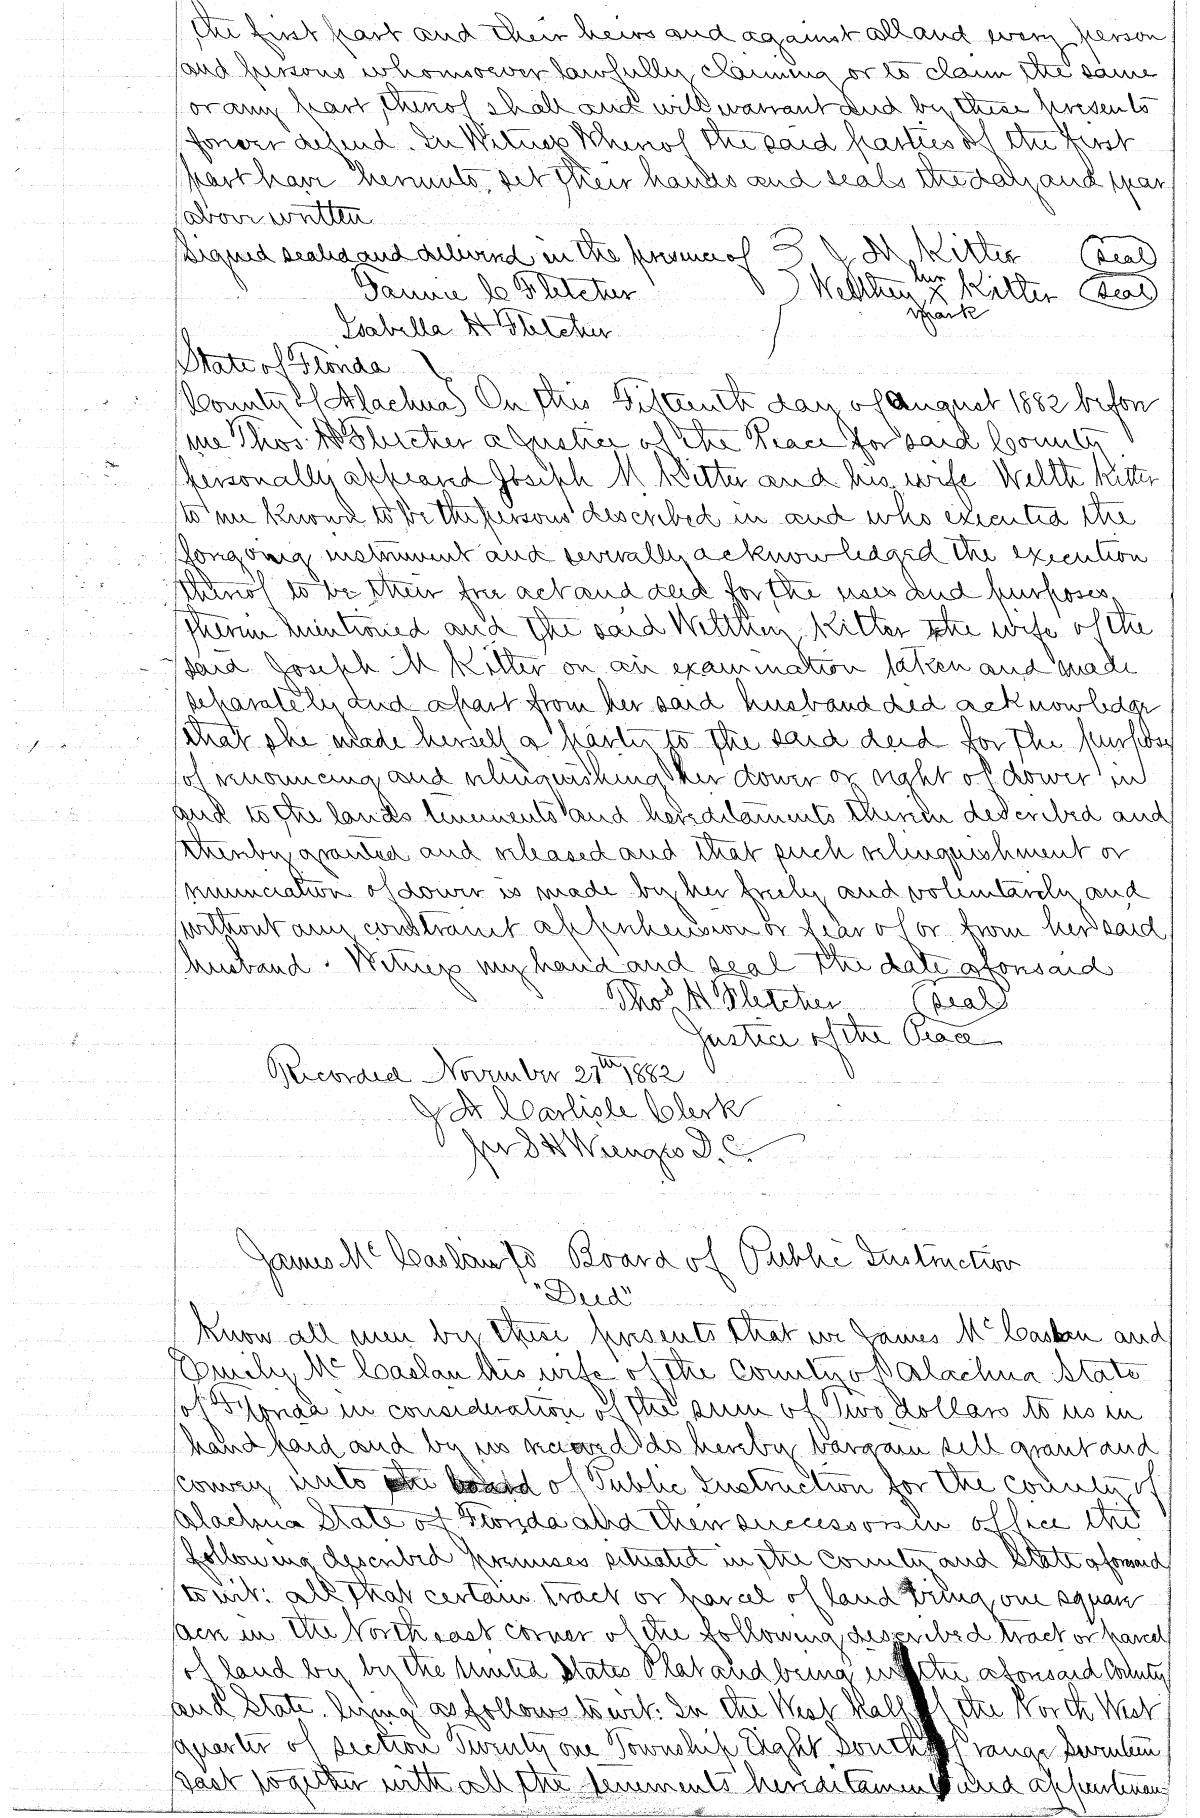 the first part and their heirs and against all and every person
and persons whomsoever lawfully claiming or to claim the same
or any part thereof shall and will warrant and by these presents
forever defend. In Witness Whereof the said parties of the first
part have hereunto set their hands and seals the day and year
above written
Signed sealed and delivered in the presence of J M Kitter (seal)
Fannie C Fletcher Welthey her x mark Kitter (seal)
Isabella H Fletcher
State of Florida
County of Alachua On this Fifteenth day of August 1882 before
me Thos H Fletcher a Justice of the Peace for said County
personally appeared Joseph M. Kitter and his wife Welth Kitter
to me known to be the persons described in and who executed the
foregoing instrument and severally acknowledged the execution
thereof to be their free act and deed for the uses and purposes
therein mentioned and the said Welthey Kitter the wife of the
said Joseph M Kitter on an examination taken and made
separately and apart from her said husband did acknowledge
that she made herself a party to the said deed for the purpose
of renouncing and relinquishing her dower or right of dower in
and to the lands tenements and hereditaments therein described and
thereby granted and released and that such relinquishment or
renunciation of dower is made by her freely and voluntarily and
without any constraint apprehension or fear of or from her said
husband. Witness my hand and seal the date aforesaid
Thos H Fletcher (seal)
Justice of the Peace
Recorded November 27th 1882
J A Carlisle Clerk
per S H Wienges D.C.
James McCaslan to Board of Public Instruction
"Deed"
Know all men by these presents that we James McCaslan and
Emily McCaslan his wife of the County of Alachua State
of Florida in consideration of the sum of Two dollars to us in
hand paid and by us received do hereby bargain sell grant and
convey unto the board of Public Instruction for the county of
Alachua State of Florida and their successors in office the
following described premises situated in the county and State aforesaid
to wit: all that certain tract or parcel of land being one square
acre in the North east corner of the following described tract or parcel
of land by by the United States Plat and being in the aforesaid County
and State. lying as follows to wit: In the West Half of the North West
quarter of section Twenty one Township Eight South of range Seventeen
East together with all the tenements hereditaments and appurtenan